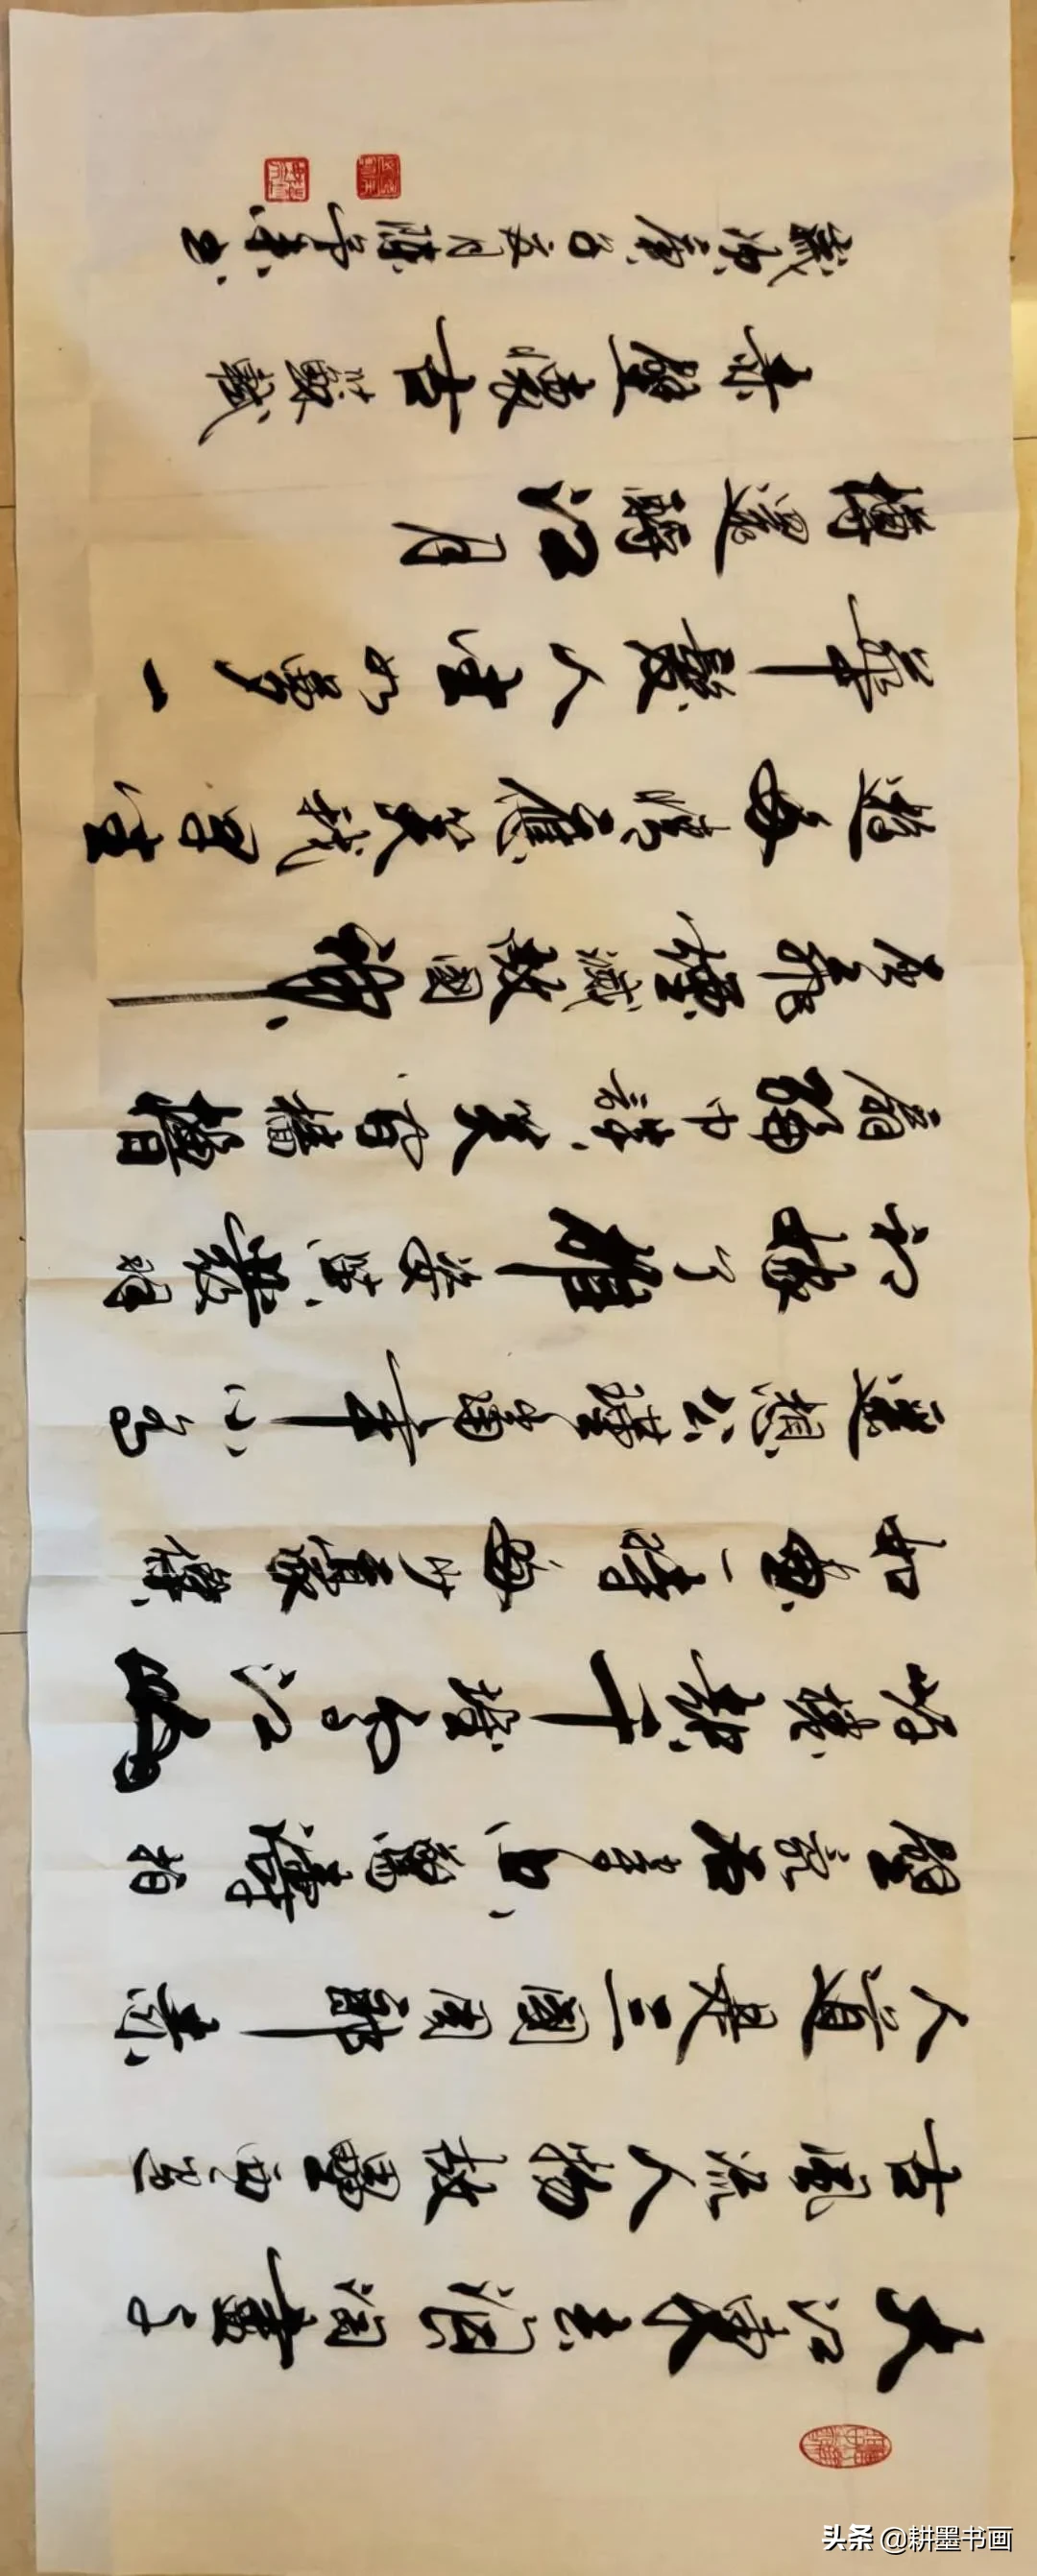 大江東去浪淘盡千
古風流人物故壘西邊
人道是三國周郎赤
壁亂石穿空驚濤拍
岸捲起千堆雪江山
如畫一時多少豪傑
遙想公瑾當年小喬
初嫁了雄姿英發羽
扇綸巾談笑間檣櫓
灰飛煙滅故國神
遊多情應笑我早生
華髮人生如夢一
樽還酹江月
赤壁懷古蘇軾
歲次庚 月
头条 @耕墨书画